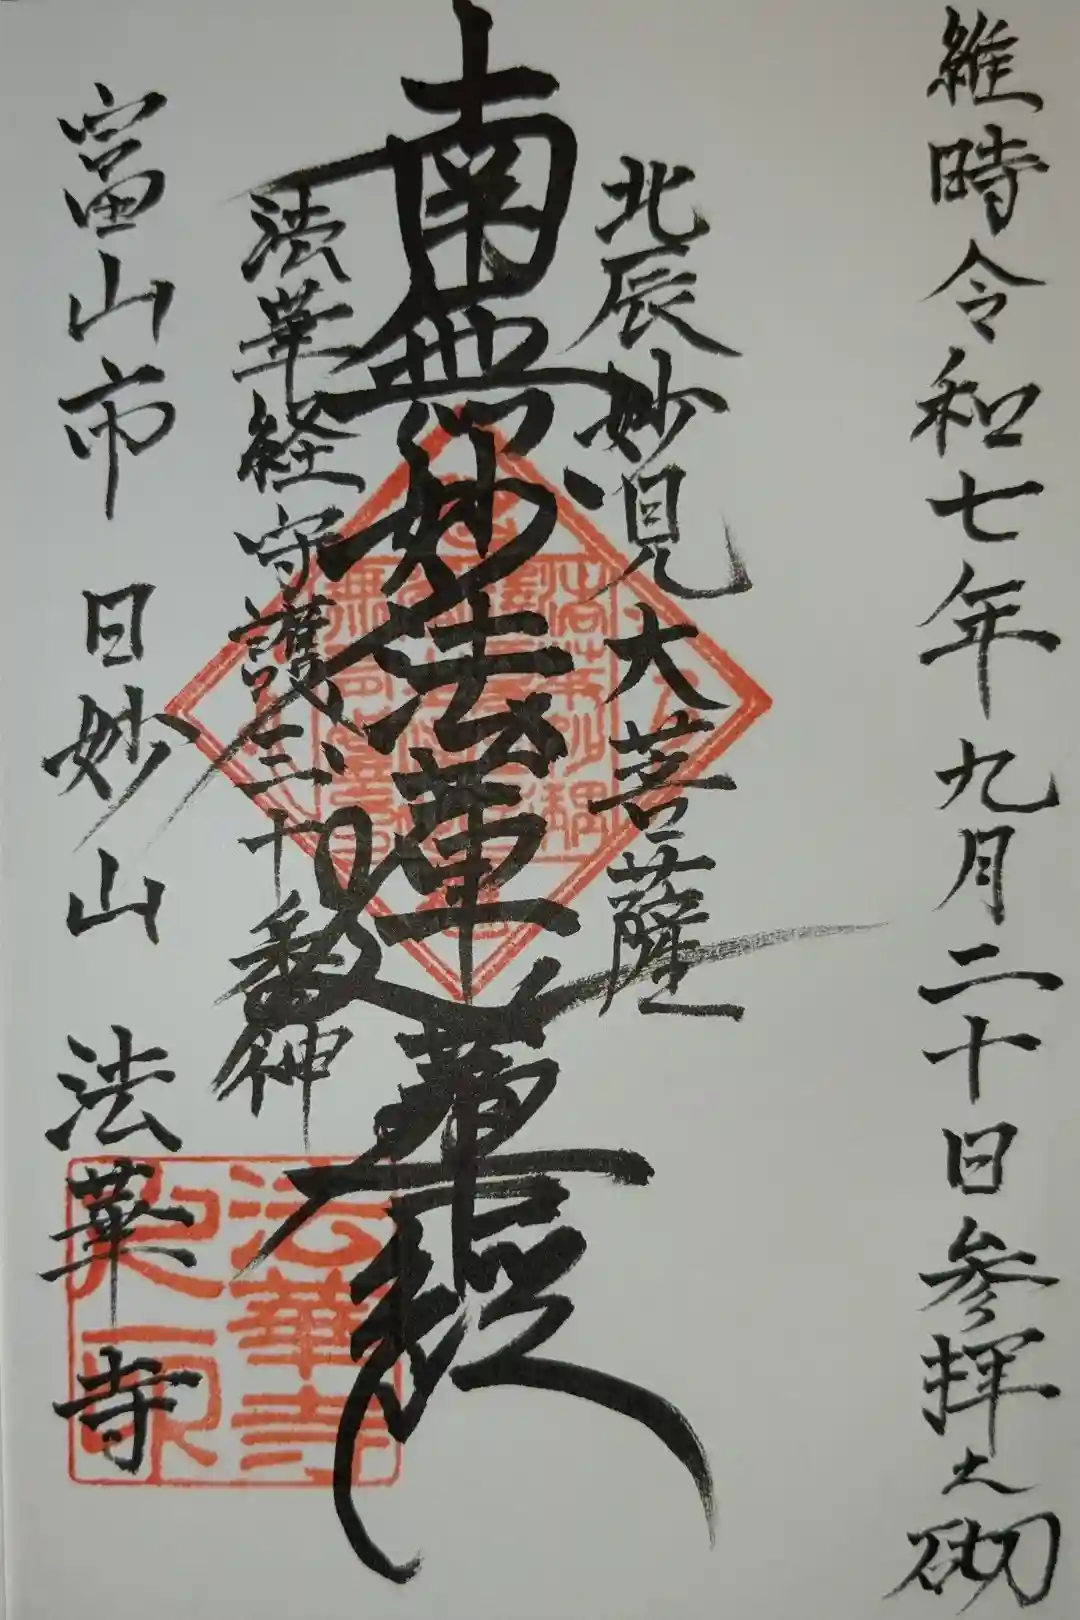 維時令和七年九月二十日参拝之砌
北辰妙見大菩薩
南無妙法蓮華経
法華経守護三十番神
富山市 日妙山 法華寺
法華寺
之印